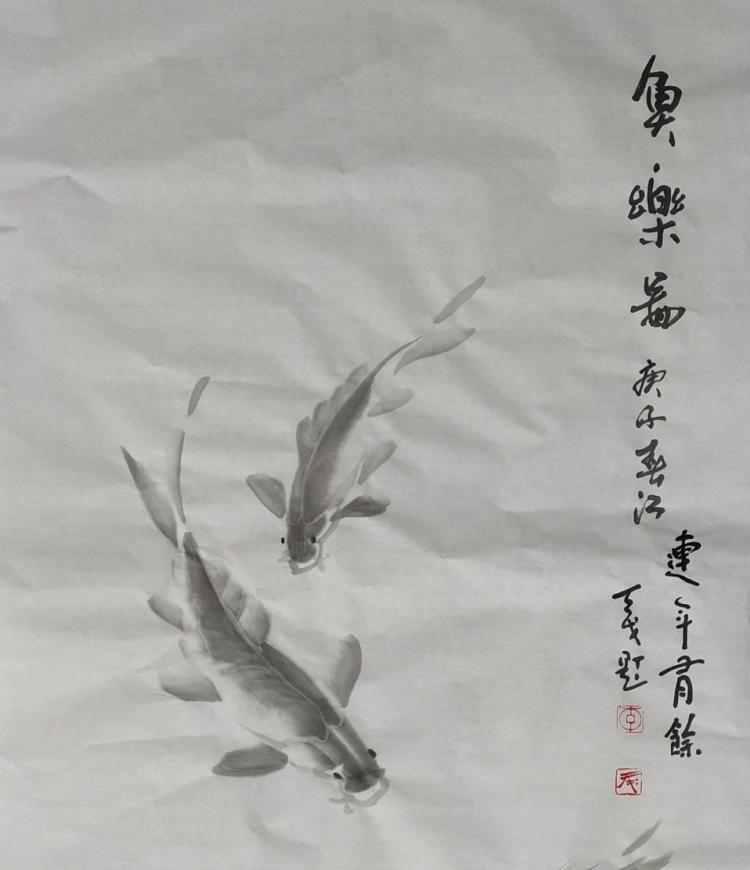 魚樂圖
庚子春江
連年有餘
戎題